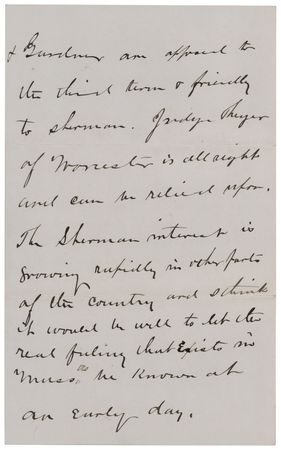 & Gardner are opposed to
the third term & friendly
to Sherman. Judge Thayer
of Worcester is all right
and can be relied upon.
The Sherman interest is
growing rapidly in other parts
of the country and I think
it would be well to let the
real feeling that Exists in
Mass be Known at
an Early day.